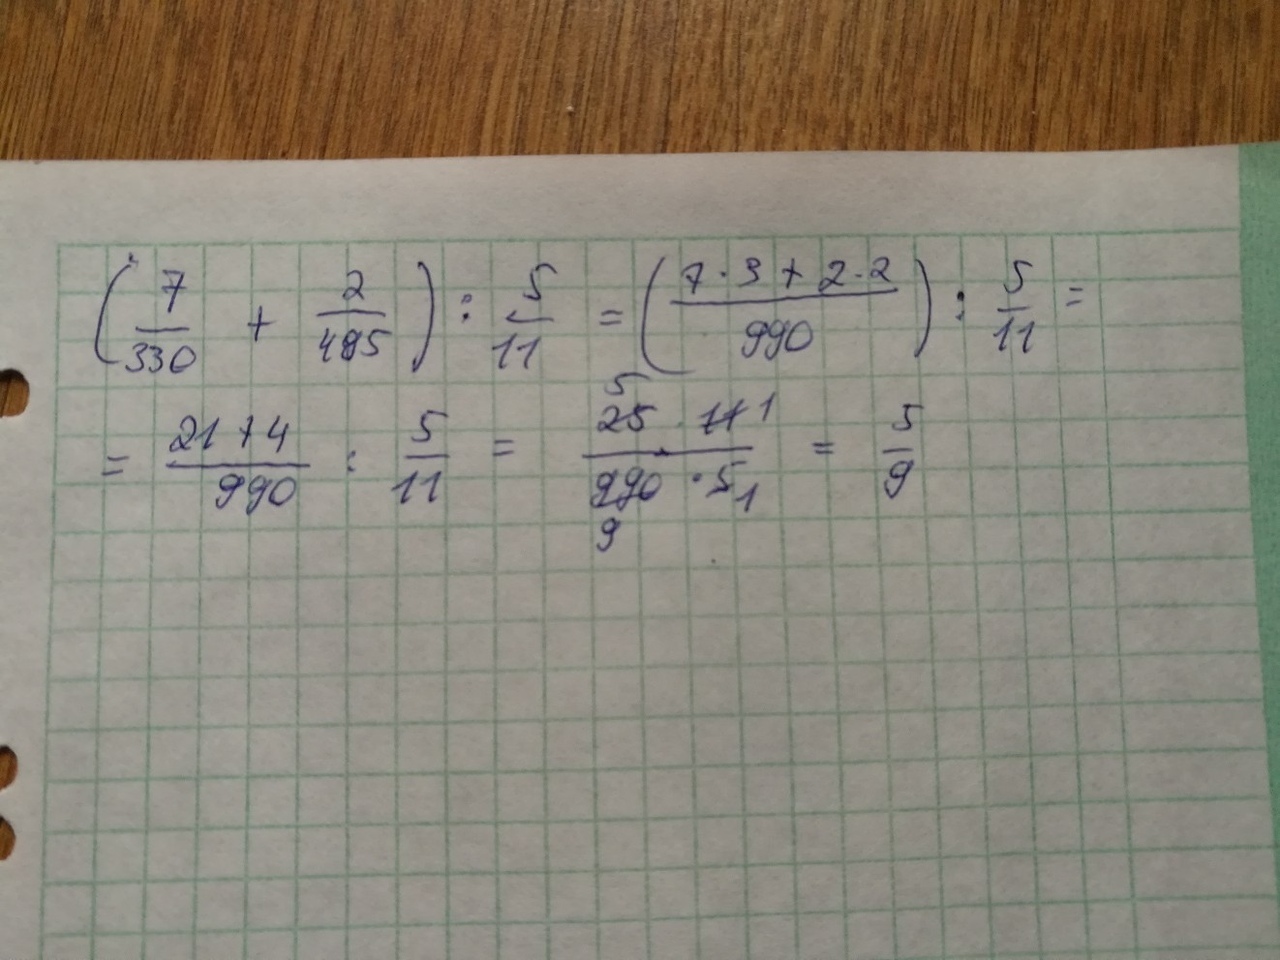 (7/330 + 2/495) : 5/11 = (7·3+2·2/990) : 5/11 =
= 21+4/990 : 5/11 = 25 5 · 11 1/990 9 · 5 1 = 5/9